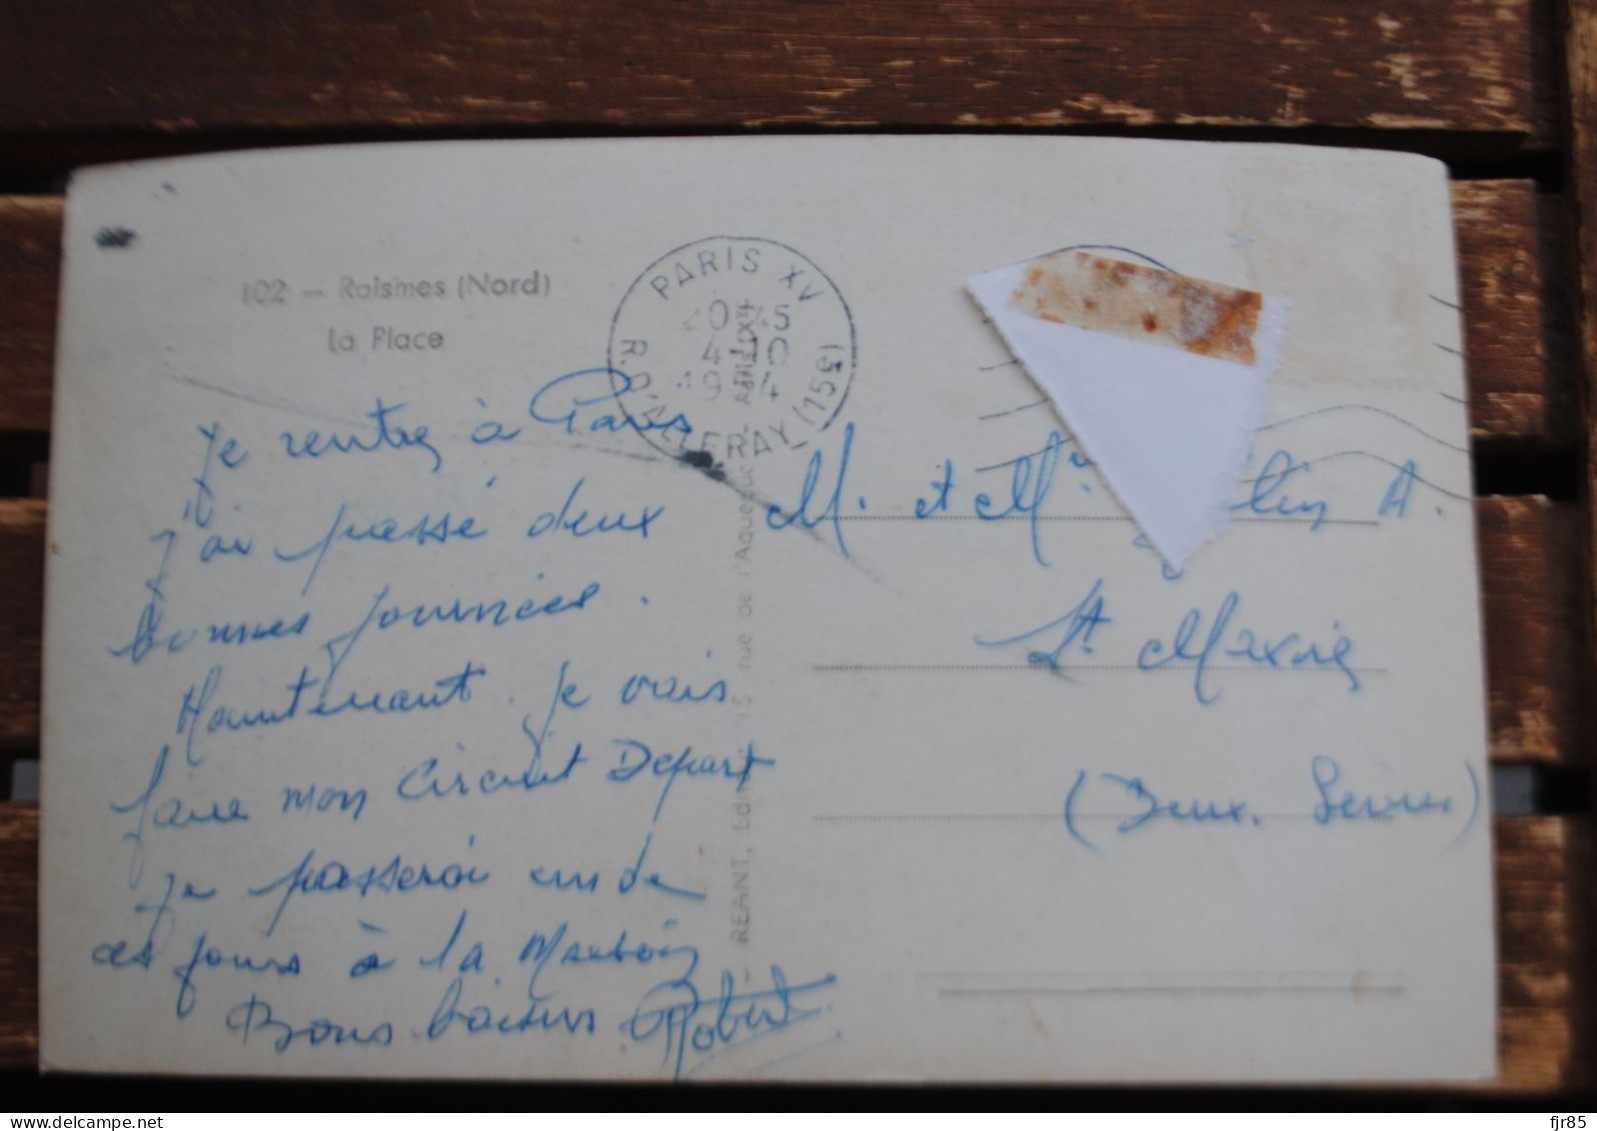 102 — Raismes (Nord)
La Place
PARIS XV
4-10
R. D'ALLERAY (15e)
Je rentre à Paris
J'ai passé deux
bonnes journées.
Maintenant. je vais
faire mon Circuit Depart
je passerai un de
ces jours à la
Bons baisers Robert
— REANT, Edit 15, rue de l'Aqueduc — PARIS
M. et Mme A.
St Maxire
(Deux. Sèvres)
fjr85